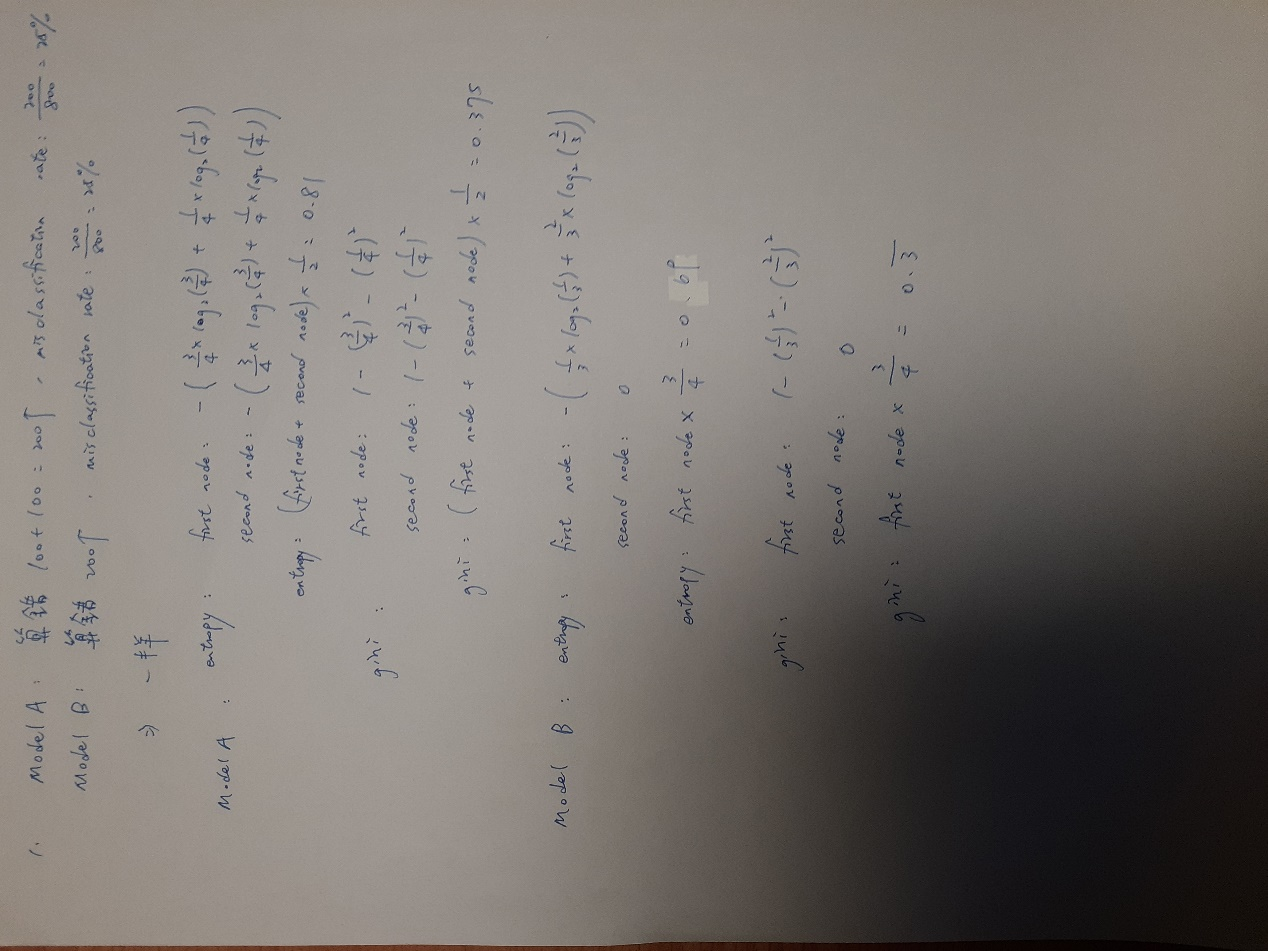 1. Model A : 算錯 100+100 = 200個 , misclassification rate : 200/800 = 25%
Model B : 算錯 200個 , misclassification rate : 200/800 = 25%
⇒ 一樣
Model A : entropy : first node : - ( 3/4 × log₂(3/4) + 1/4 × log₂(1/4) )
second node : - ( 3/4 × log₂(3/4) + 1/4 × log₂(1/4) )
entropy : (first node + second node) × 1/2 = 0.81
gini : first node : 1 - (3/4)² - (1/4)²
second node : 1 - (3/4)² - (1/4)²
gini : (first node + second node) × 1/2 = 0.375
Model B : entropy : first node : - ( 1/3 × log₂(1/3) + 2/3 × log₂(2/3) )
second node : 0
entropy : first node × 3/4 = 0.69
gini : first node : 1 - (1/3)² - (2/3)²
second node : 0
gini : first node × 3/4 = 0.3̅